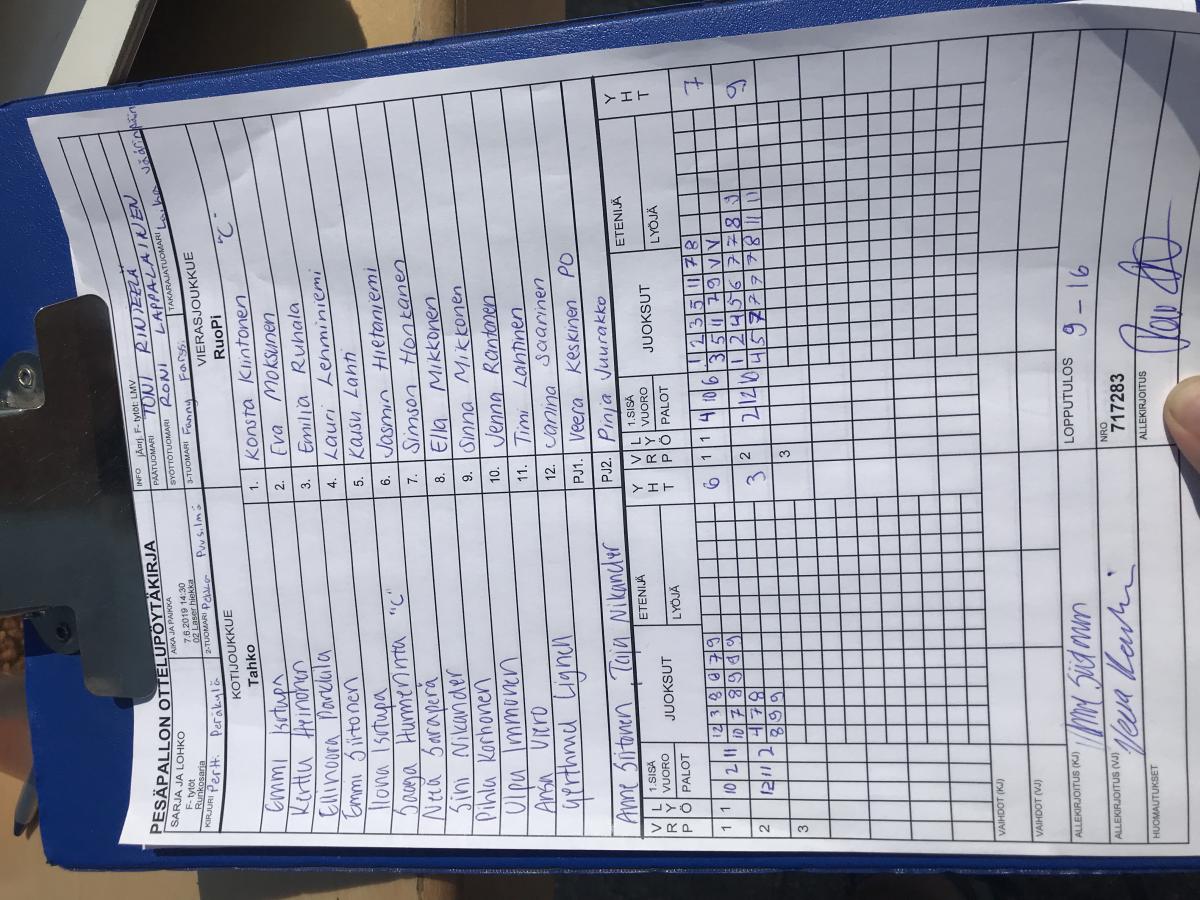 PESÄPALLON OTTELUPÖYTÄKIRJA
SARJA JA LOHKO
F- tytöt
Runkosarja
AIKA JA PAIKKA
7.6.2019 14:30
02 Laser hiekka
INFO jÄorj. F- tytöt: LMV
PÄÄTUOMARI TONI RINJEELÄ
SYÖTTÖTUOMARI RONI LAPPALAINEN
TAKARAJATUOMARI
KIRJURI Pertti Peräkylä
2-TUOMARI Pekko Puusilmä
3-TUOMARI Fanny Farssi
KOTIJOUKKUE
Tahko
VIERASJOUKKUE
RuoPi
Emmi Isotupa
Kerttu Heinonen
Ellinoora
Emmi Siitonen
Ilona Isotupa
Saaga Hurmerinta "C"
Neea
Sini Nikander
Pihla Korhonen
Ulpu Immonen
Ansa Viero
Lignell
Anne Siitonen, Taija Nikander
1. Konsta Kiintonen "C"
2. Eva Moksunen
3. Emilia Ruhala
4. Lauri Lehminiemi
5. Kaisu Lahti
6. Jasmin Hietaniemi
7. Simson Honkanen
8. Ella Mikkonen
9. Sinna Mikkonen
10. Jenna Rantanen
11. Timi Lahtinen
12. Janina Saarinen
PJ1. Veera Keskinen PO
PJ2. Pinja Juurakko
V L
R Y
P Ö
1.SISÄ
VUORO
PALOT
JUOKSUT
ETENIJÄ
LYÖJÄ
Y
H
T
V L
R Y
P Ö
1.SISÄ
VUORO
PALOT
JUOKSUT
ETENIJÄ
LYÖJÄ
Y
H
T
1 10 2 11 12 3 8 8 7 9 6
10 7 8 9 9 9
2 12 11 2 4 7 8 3
8 9 9
3
1 1 4 10 6 1 2 3 5 11 7 8 7
3 5 11 7 9 V V
2 2 12 10 1 2 4 5 6 7 7 8 9 9
4 5 7 7 9 7 8 11 11
3
VAIHDOT (KJ)
VAIHDOT (VJ)
ALLEKIRJOITUS (KJ)
LOPPUTULOS 9 - 16
ALLEKIRJOITUS (VJ)
NRO
717283
HUOMAUTUKSET
ALLEKIRJOITUS